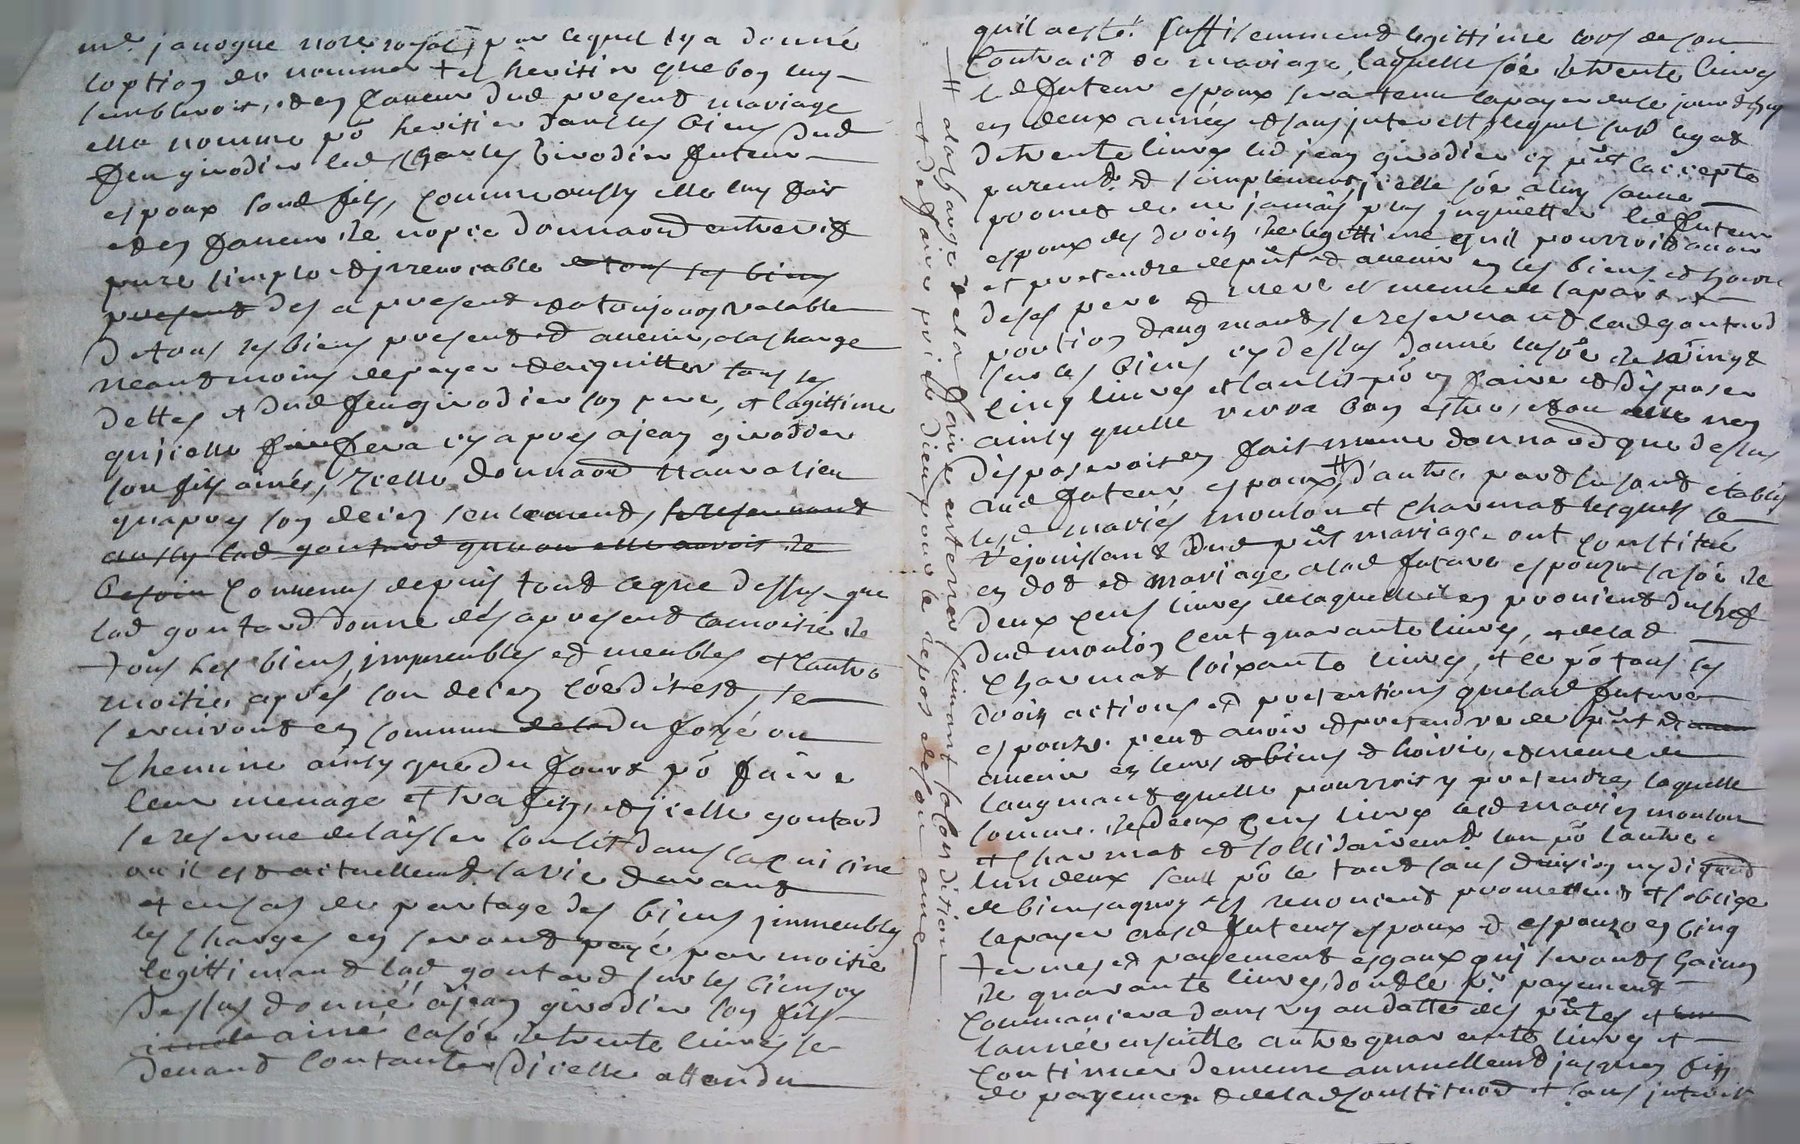 me janogue nore royal, par lequel luy a donné
loption de nommer tel héritier que bon luy
sembleroit, et en faveur dud present mariage
elle nomme pô heritier dans les biens dud
feu girodier led Charles Girodier futeur
espoux soud fils, comme aussy elle luy fait
et en faveur de nopce donnaõn entrevifs
pure simple et jrrevocable et tous ses biens
present des a present et a toujours valable
De tous ses biens present et avenir, a la charge
neantmoins de payer et acquitter tous les
dettes et dud feu girodier son pere, et lagittime
qu'jcelle fait fera cy apres a jean girodier
son fils ainés, Icelle donnaõn n'aura lieu
qu'apres son decez seulement, se reservant
aussy lad goutard qu'en elle auroit de
besoin Convenus depuis tout ce que dessus que
lad goutard donne dés a present la moitié de
tous ses biens jmmeubles et meubles et l'autre
moitié apres son decez côe dit est, se
serviront en commun de la du foyé ou
cheminé ainsy que du fourt pô faire
leur menage et trafiq, et jcelle goutard
se reserve de laisser son lit dans la cuisine
ou il est actuellemt sa vie durant
et en cas de partage des biens jmmeubles
les charges en seront payé par moitié
legittimant lad goutard sur les biens cy
dessus donné a jean girodier son fils
ainé la sôe de trente livres se
devant contanter d'icelle attendu
qu'il a esté suffisemment legittime lors de son
Contrait de mariage, laquelle sôe de trente livres
led futeur espoux sera tenu la payer de ce jourd'huy
en deux années et sans jnterest, lequel susd legat
de trente livres led jean girodier cy pñt l'accepte
purement et simplement, jcelle sôe a luy
promet de ne jamais plus jnquietter led futeur
espoux des droits de legittime qu'il pourroit avoir
et pretendre de pñt et avenir en les biens et hoirie
de ses pere et mere et meme de la part et
portion d'augmant, se reservant lad goutard
sur les biens cy dessus donné la sôe de vingt
cinq livres et son lit pô en faire et disposer
ainsy quelle verra bon estre, et ou elle n'en
disposeroit en fait meme donnaõn que dessus
aud futeur espoux, d'autre part lesont etably
lesd mariés moulon et charmat lesquels se
rejouissant dud pñt mariage ont constitué
en dot et mariage a lad future espouze la sôe de
deux cens livres de laquelle il en provient du chef
dud moulon cent quarante livres, et de lad
charmat soixante livres, et ce pô tous les
droits actions et pretentions que lad future
espouze peut avoir et pretendre de pñt et
avenir ez leurs biens et hoirie, et meme de
laugmant quelle pourroit y pretendre, laquelle
somme de deux cens livres lesd mariés moulon
et charmat et sollidairemt l'un pô l'autre
l'un deux seul pô le tout sans division ny
de biens a quoy ils renoncent promettent et s'oblige
la payer ausd futeurs espoux et espouze en cinq
termes et payement esgaux qui seront chacun
de quarante livres, dont le pr payement
commancera dans un an datte des pñtes et
l'année ensuitte autre quarante livres et
continuer de meme annuellemt jusques fin
de payement de lad constitutõn et sans jnterest
# a la charge de la faire enterrer suivant sa condition
et de faire prier dieu pour le repos de son ame